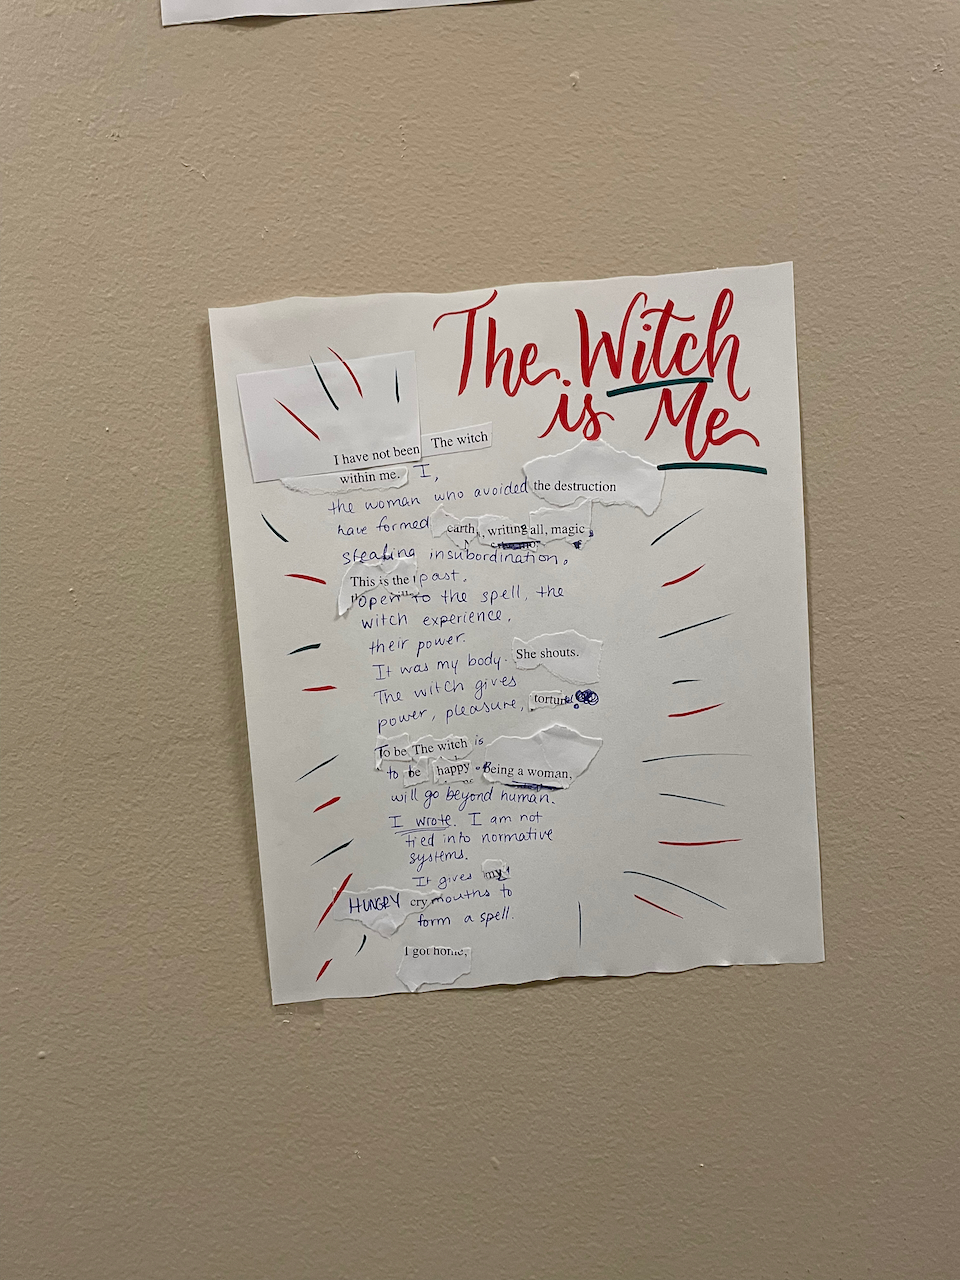 The Witch
is Me
I have not been The witch
within me. I,
the woman who avoided the destruction
have formed earth, writing all, magic,
stealing insubordination.
This is the past.
open to the spell, the
witch experience,
their power.
It was my body. She shouts.
The witch gives
power, pleasure, torture
To be The witch is
to be happy. Being a woman,
will go beyond human.
I wrote. I am not
tied into normative
systems.
It gives my
HUNGRY cry mouths to
form a spell.
I got home,